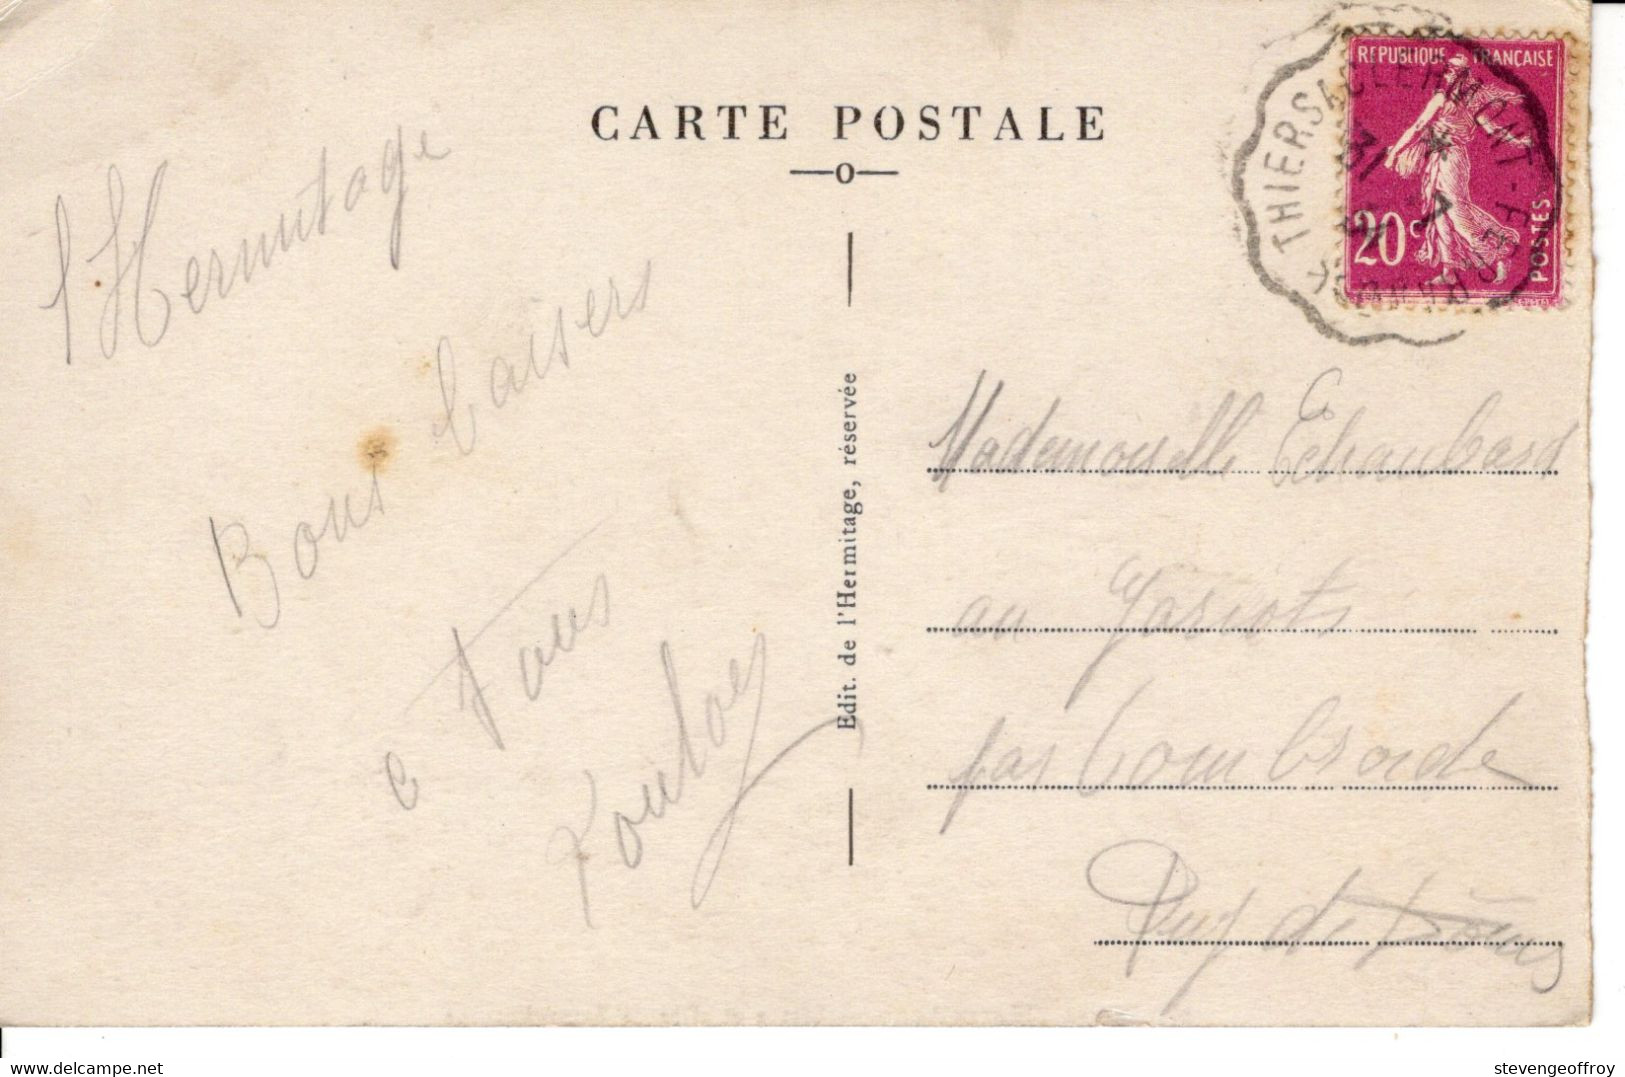 CARTE POSTALE
REPUBLIQUE FRANÇAISE
20c
POSTES
THIERS A CLERMONT-FERRAND
31
7
l'Hermitage
Bons baisers
a Tous
Edit. de l'Hermitage, réservée
Mademoiselle
au
par Combronde
Puy de Dôme
delcampe.net
stevengeoffroy